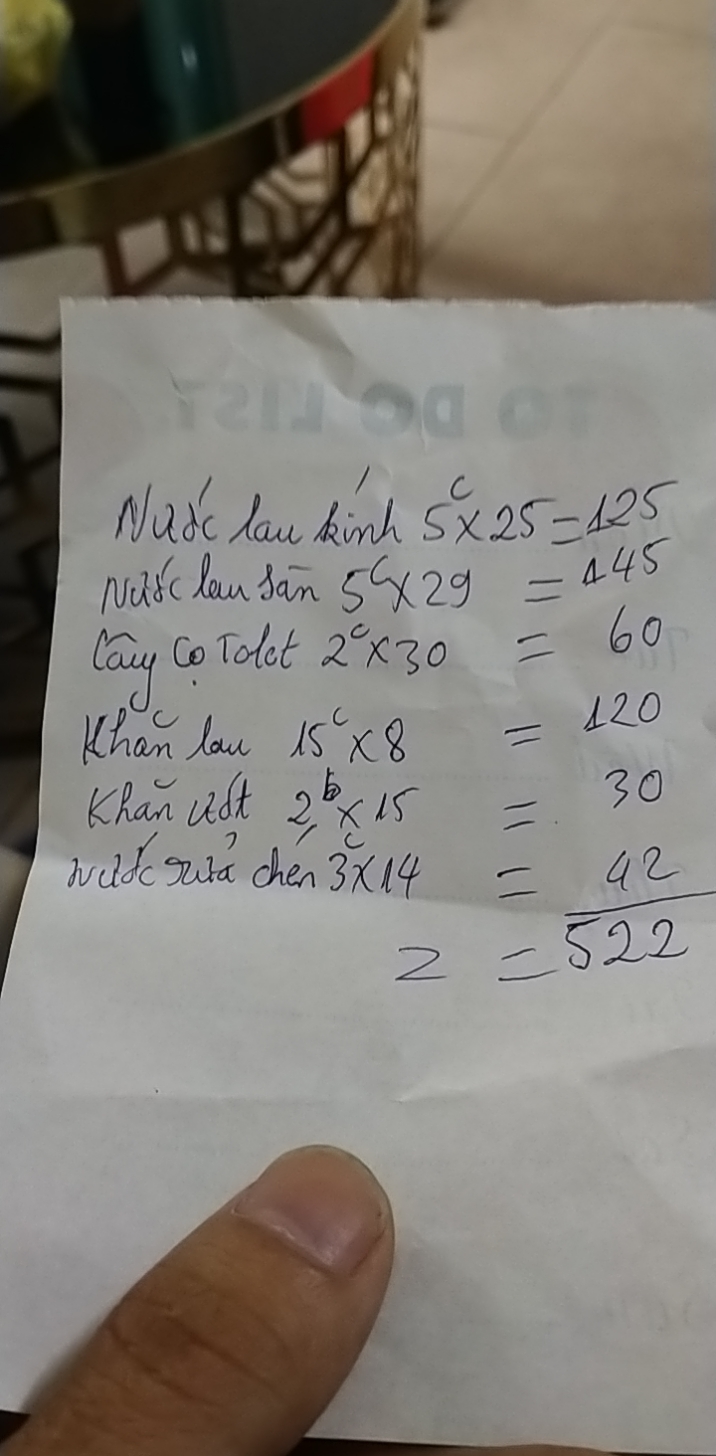 TO DO LIST
Nước lau kính 5c x 25 = 125
Nước lau sàn 5c x 29 = 145
Cây cọ Tolet 2c x 30 = 60
Khăn lau 15c x 8 = 120
Khăn ướt 2b x 15 = 30
nước rửa chén 3c x 14 = 42
Σ = 522